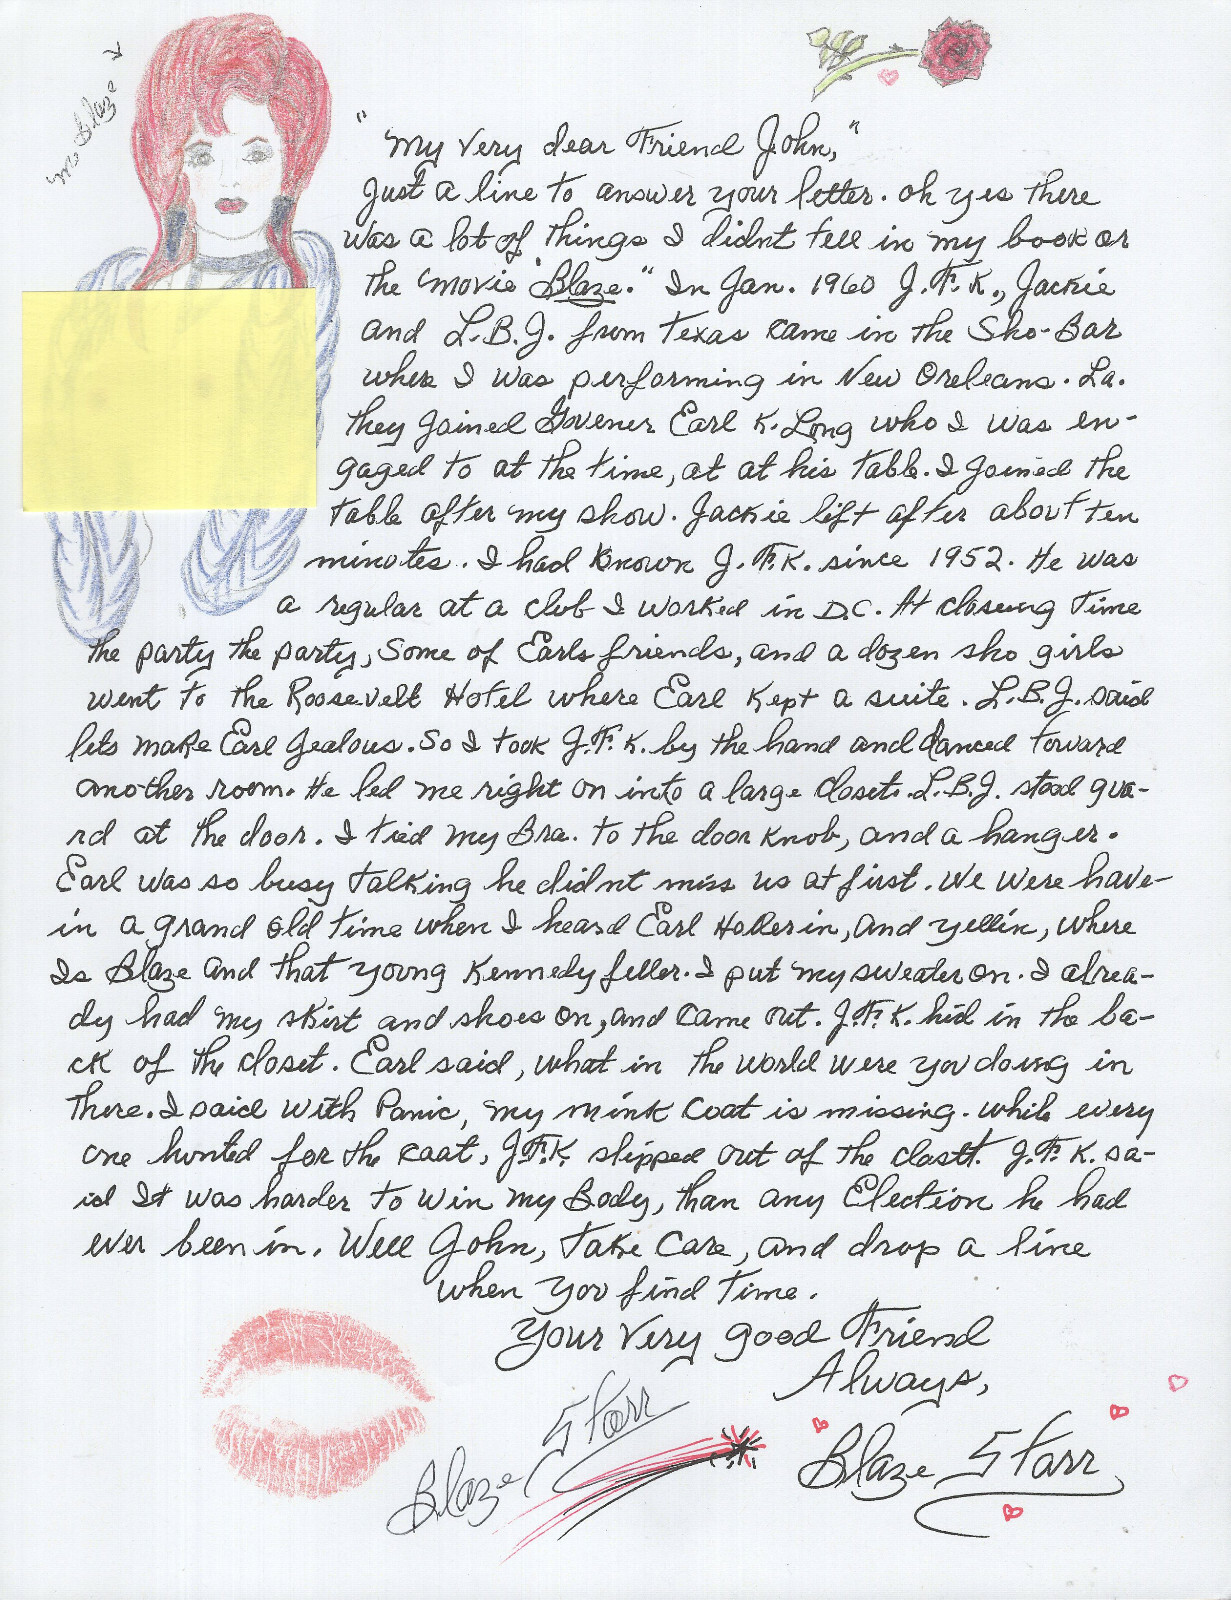 Ms Blaze
"My Very dear Friend John,"
Just a line to answer your letter. oh yes there
was a lot of things I didnt tell in my book or
the movie "Blaze." In Jan. 1960 J.F.K., Jackie
and L.B.J. from Texas came in the Sho-Bar
where I was performing in New Orleans. La.
they joined Govener Earl K. Long who I was en-
gaged to at the time, at at his table. I joined the
table after my show. Jackie lift after about ten
minotes. I had known J.F.K. since 1952. He was
a regular at a club I worked in D.C. At closeing time
the party the party, Some of Earls friends, and a dozen sho girls
went to the Roosevelt Hotel where Earl kept a suite. L.B.J. said
lets make Earl Jealous. So I took J.F.K. by the hand and danced torward
another room. He led me right on into a large closet. L.B.J. stood gua-
rd at the door. I tied my Bra. to the door knob, and a hanger.
Earl was so busy talking he didnt miss us at first. We were have-
in a grand old time when I heard Earl Hollerin, and yellin, where
Is Blaze and that young Kennedy feller. I put my sweater on. I alrea-
dy had my skirt and shoes on, and came out. J.F.K. hid in the ba-
ck of the closet. Earl said, what in the world were you doing in
there. I said with Panic, my mink coat is missing. while every
one hunted for the coat, J.F.K. slipped out of the closet. J.F.K. sa-
id It was harder to win my Body, than any Election he had
ever been in. Well John, take care, and drop a line
when you find time.
Your Very good Friend
Always,
Blaze Starr
Blaze Starr